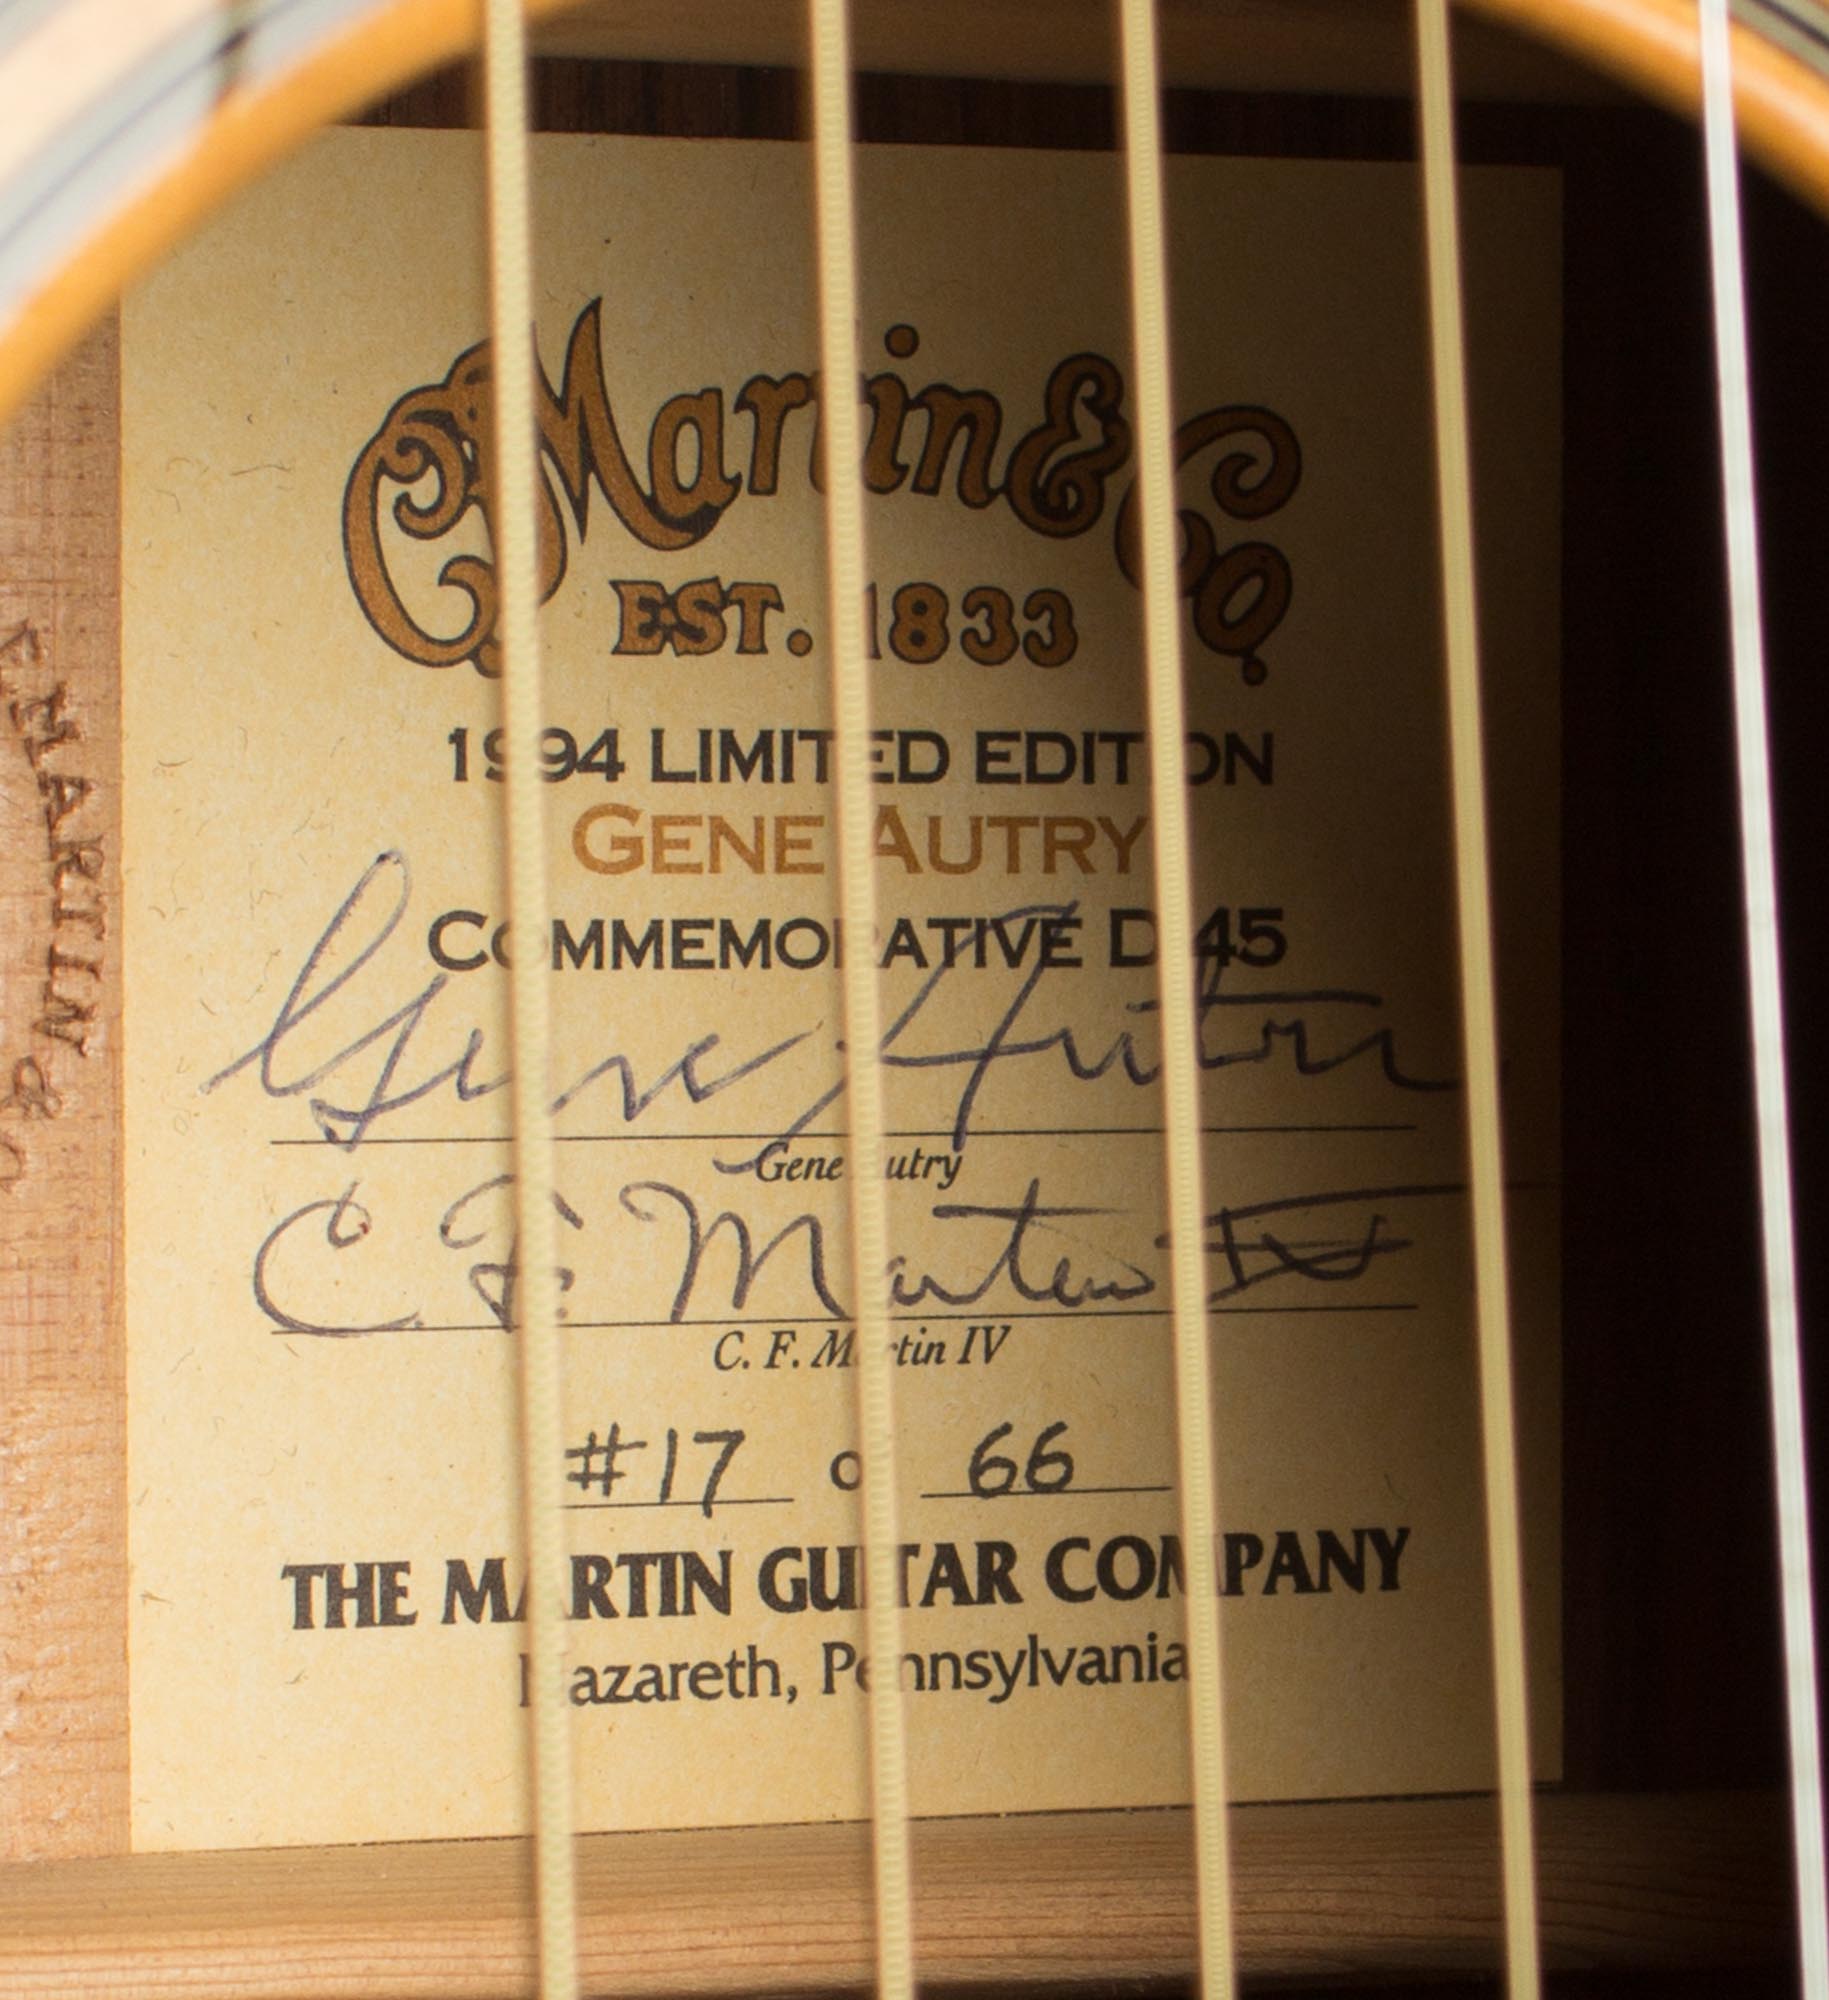 CF Martin & Co
EST. 1833
1994 LIMITED EDITION
GENE AUTRY
COMMEMORATIVE D-45
Gene Autry
Gene Autry
C. F. Martin IV
C. F. Martin IV
#17 of 66
THE MARTIN GUITAR COMPANY
Nazareth, Pennsylvania
F. MARTIN & C